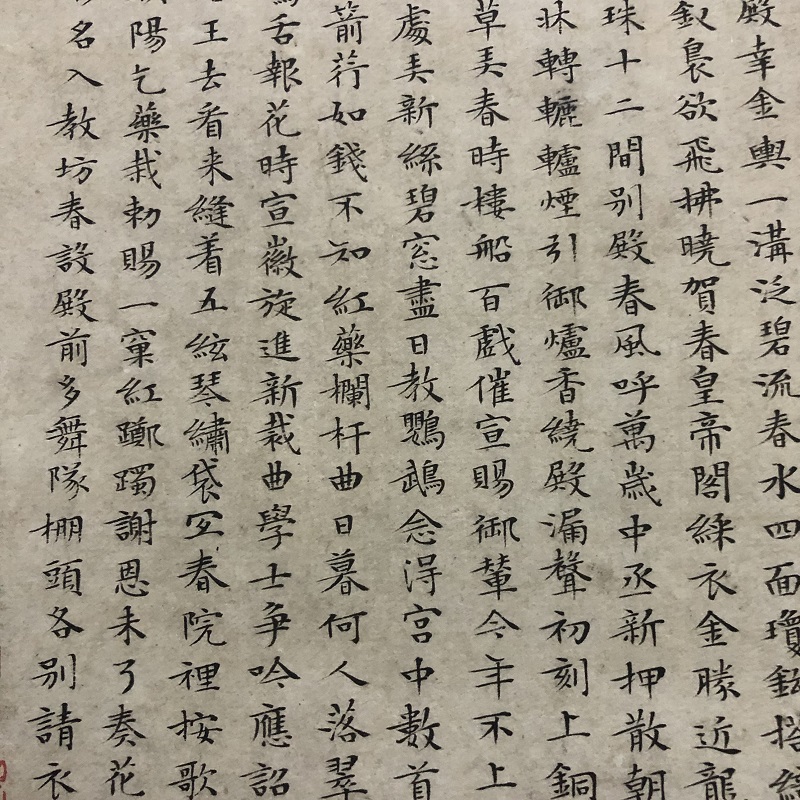 殿幸金輿一溝泛碧流春水四面瓊鈎搭綠
釵裊欲飛拂曉賀春皇帝閣綵衣金勝近龍
珠十二間別殿春風呼萬歲中丞新押散朝
牀轉轆轤煙引御爐香繞殿漏聲初刻上銅
草弄春時樓船百戲催宣賜御輦今年不上
處弄新絲碧窓盡日教鸚鵡念得宮中數首
箭荇如錢不知紅藥欄杆曲日暮何人落翠
舌報花時宣徽旋進新裁曲學士争吟應詔
王去看来縫着五絃琴繡袋冝春院裡按歌
陽乞藥栽勅賜一窠紅躑躅謝恩未了奏花
名入教坊春設殿前多舞隊棚頭各別請衣